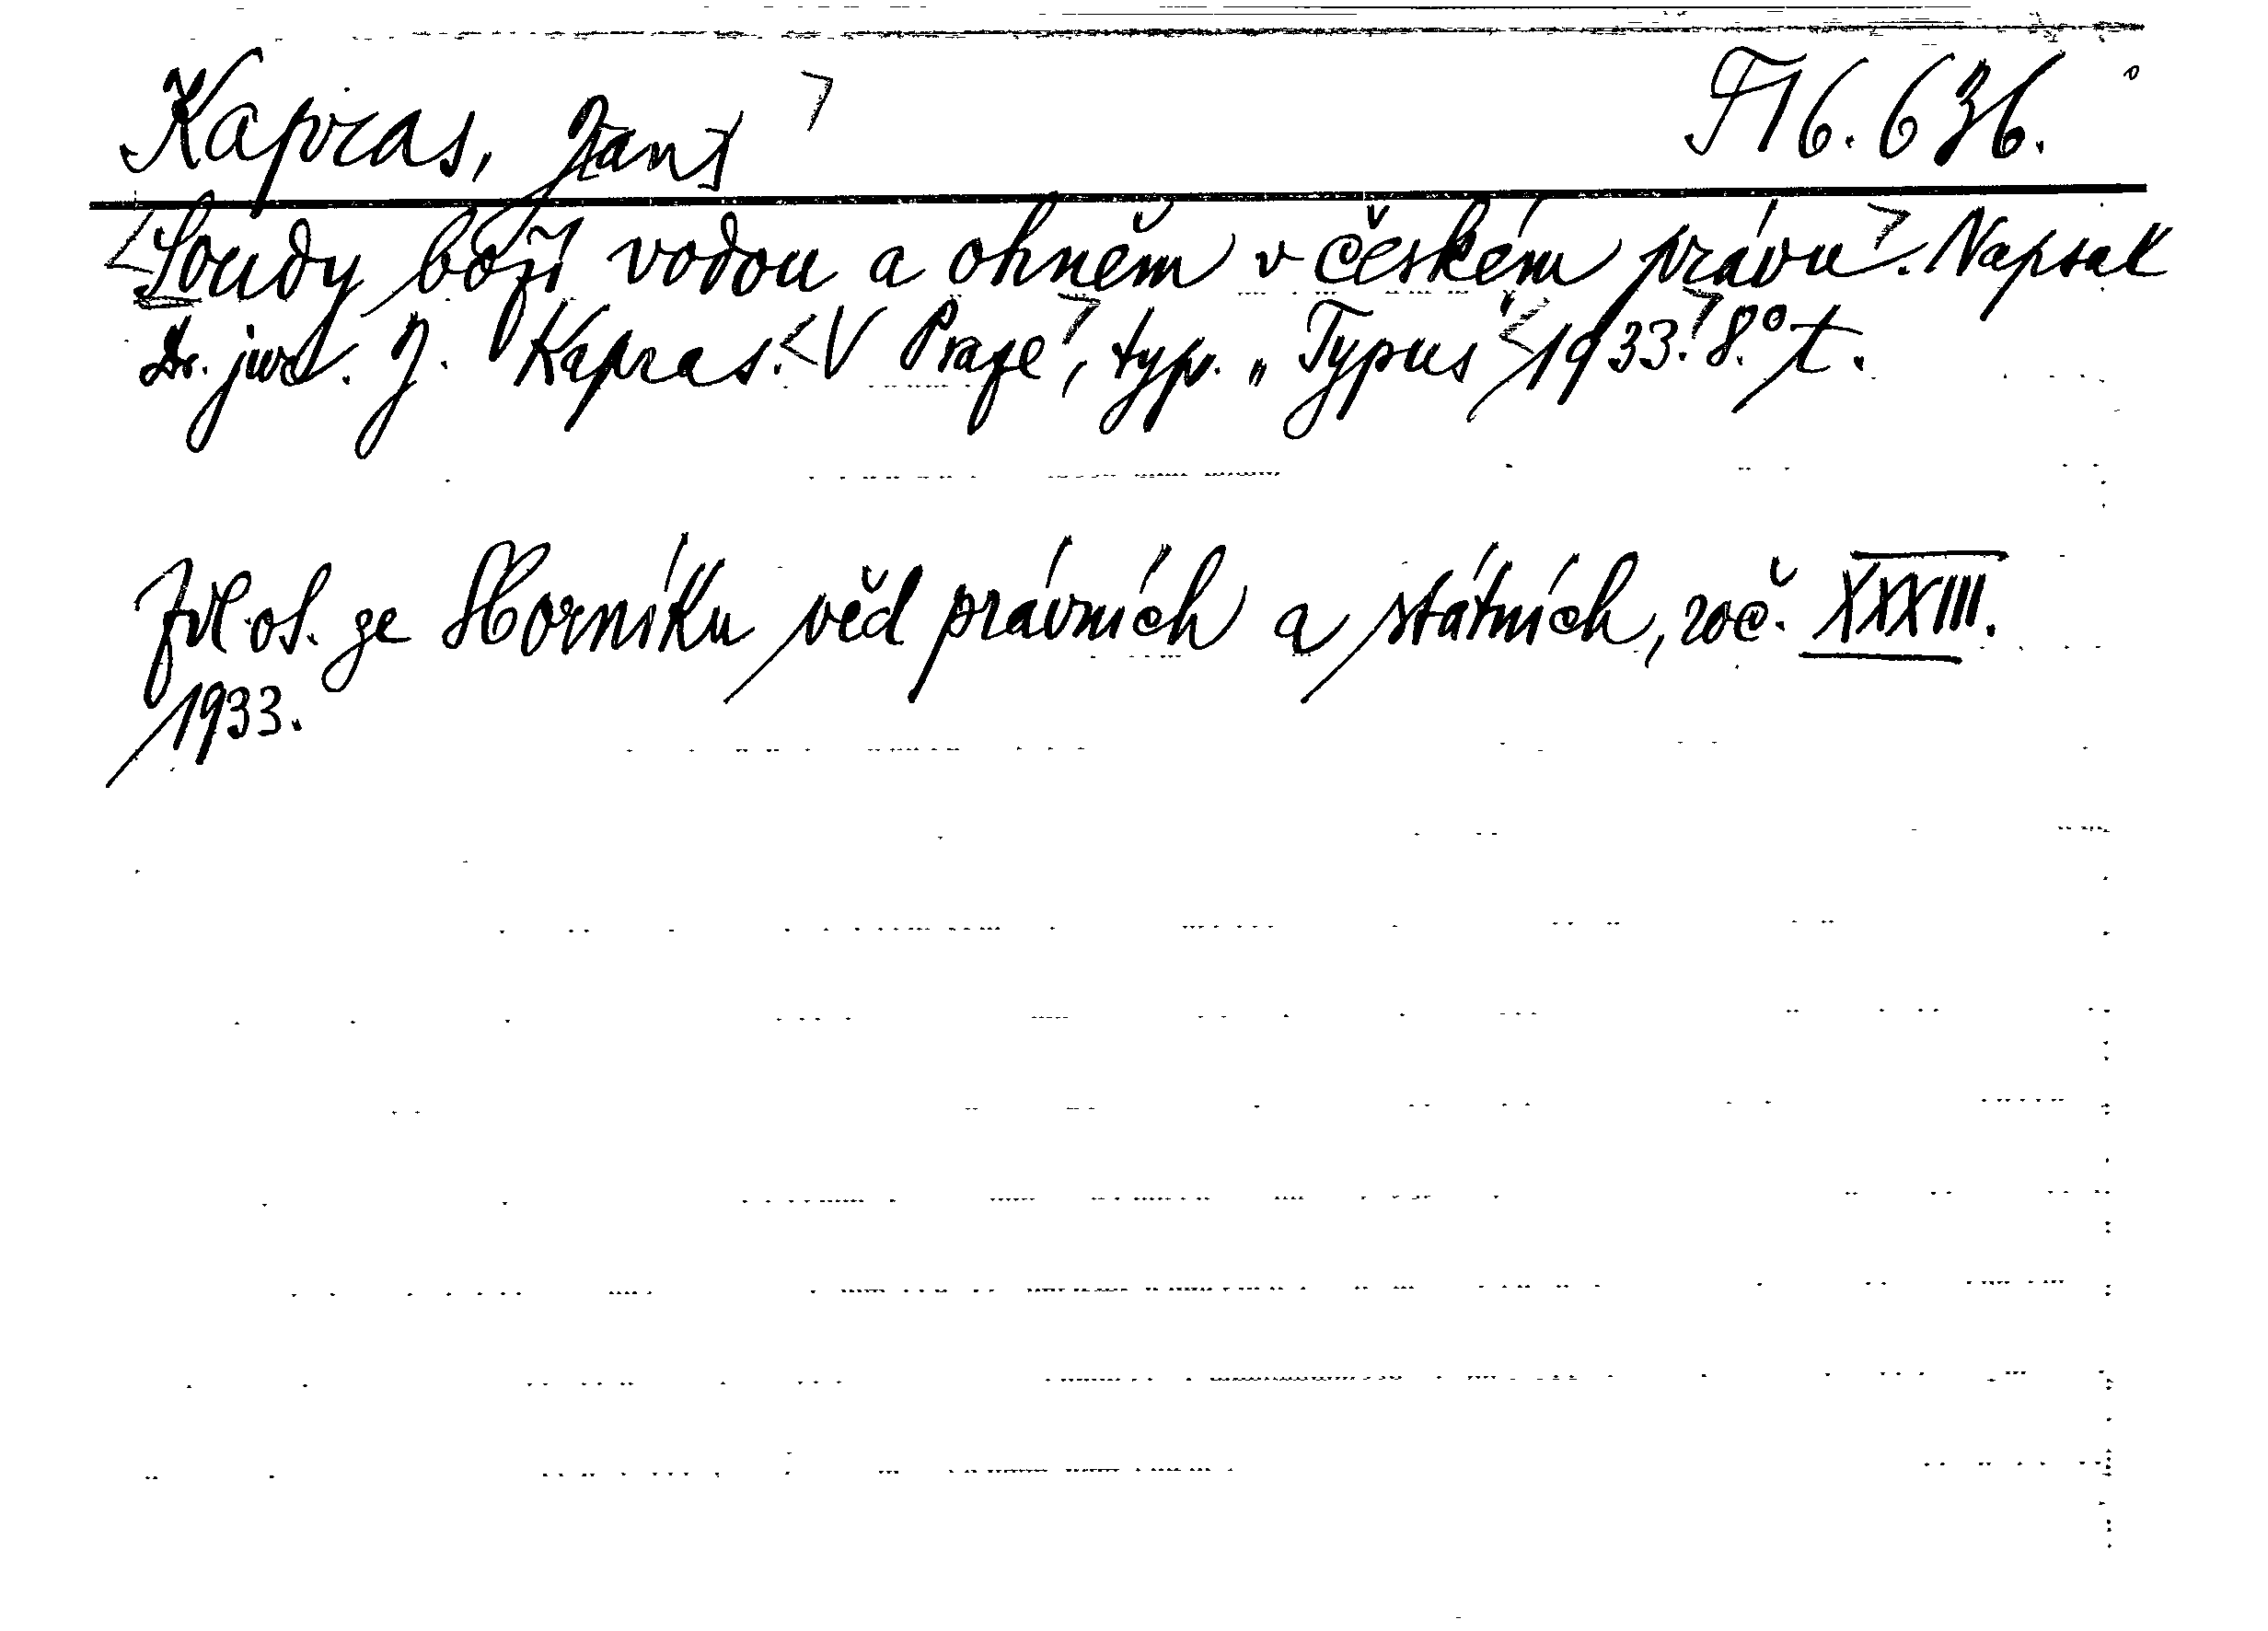 Kapras, J[an] TI 6. 636.
Soudy boží vodou a ohněm v českém právu. Napsal
Dr. jur. J. Kapras. V Praze, typ. „Typus" 1933. 8.° t.
Zvl. ot. ze Sborníku věd právních a státních, roč. XXXIII.
1933.